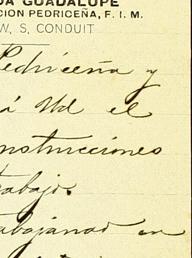 DA GUADALUPE
CION PEDRICEÑA, F. I. M.
W, S, CONDUIT
Pedriceña y
á Ud el
nstrucciones
rabajo.
rabajando en